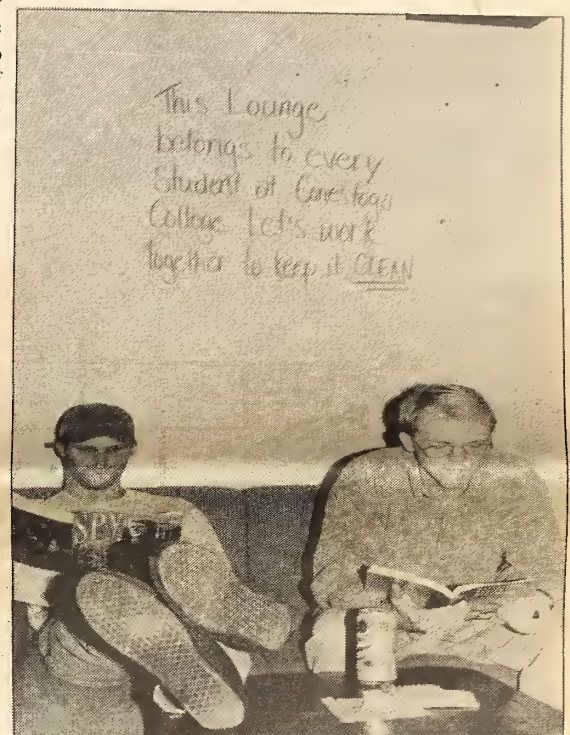 This Lounge
belongs to every
Student of Conestoga
College Let's work
together to keep it CLEAN
SPY